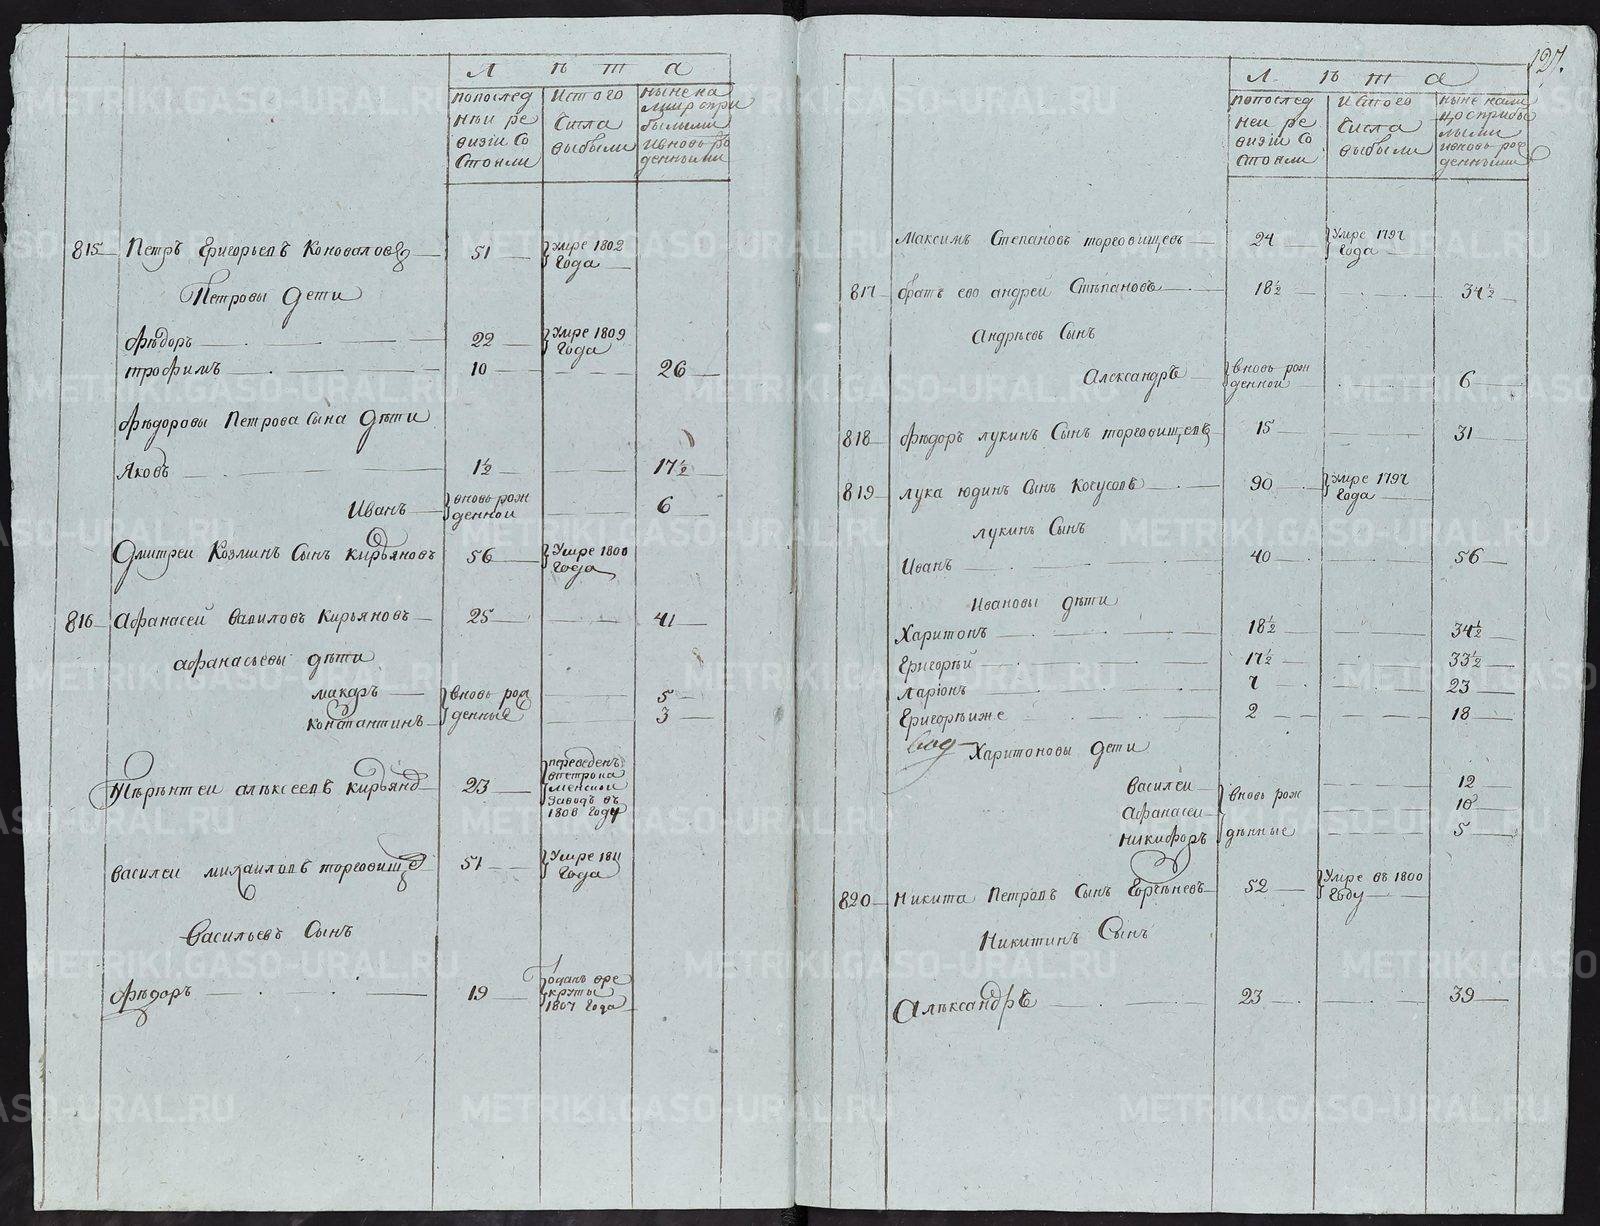 Лѣта
попослед ней ре визіи со стояли
истого числа выбыли
ныне на лицо спри былыми ивновь ро денными
815 Петръ Григорьевъ Коноваловъ 51 умре 1802 года
Петровы дети
Фѣдоръ 22 умре 1809 года
трофимъ 10 26
Фѣдоровы Петрова сына дѣти
Яковъ 1½ 17½
Иванъ вновь рож денной 6
Дмитреи Козминъ Сынъ кирьяновъ 56 умре 1800 года
816 Афанасей вавиловъ Кирьяновъ 25 41
афанасьевы дѣти
макаръ вновь рож 5
константинъ денные 3
Тѣрѣнтеи алѣксеевъ кирьянов 23 переведенъ впетрока менской заводъ въ 1808 году
василеи михаиловъ торговищев 51 умре 1811 года
Васильевъ Сынъ
Фѣдоръ 19 одань вре круты 1807 года
127.
Лѣта
попослед неи ре визіи со стояли
истого числа выбыли
ныне нали цо сприбы лыми ивновь рое денными
Максимъ Степановъ торговищевъ 24 умре 1797 года
817 братъ ево андрей Стѣпановъ 18½ 34½
Андрѣевъ Сынъ
Александръ вновь рож денной 6
818 Фѣдоръ лукинъ Сынъ торговищевъ 15 31
819 лука юдинъ Сынъ Косусовъ 90 умре 1797 года
лукинъ Сынъ
Иванъ 40 56
Ивановы дѣти
Харитонъ 18½ 34½
Григорѣй 17½ 33½
Ларіонъ 7 23
Григорѣиже 2 18
Харитоновы дети
василеи 12
афанасеи вновь рож 10
никифоръ дѣнные 5
820 Никита Петровъ Сынъ Горчѣневъ 52 умре въ 1800 году
Никитинъ Сынъ
Алѣксандръ 23 39